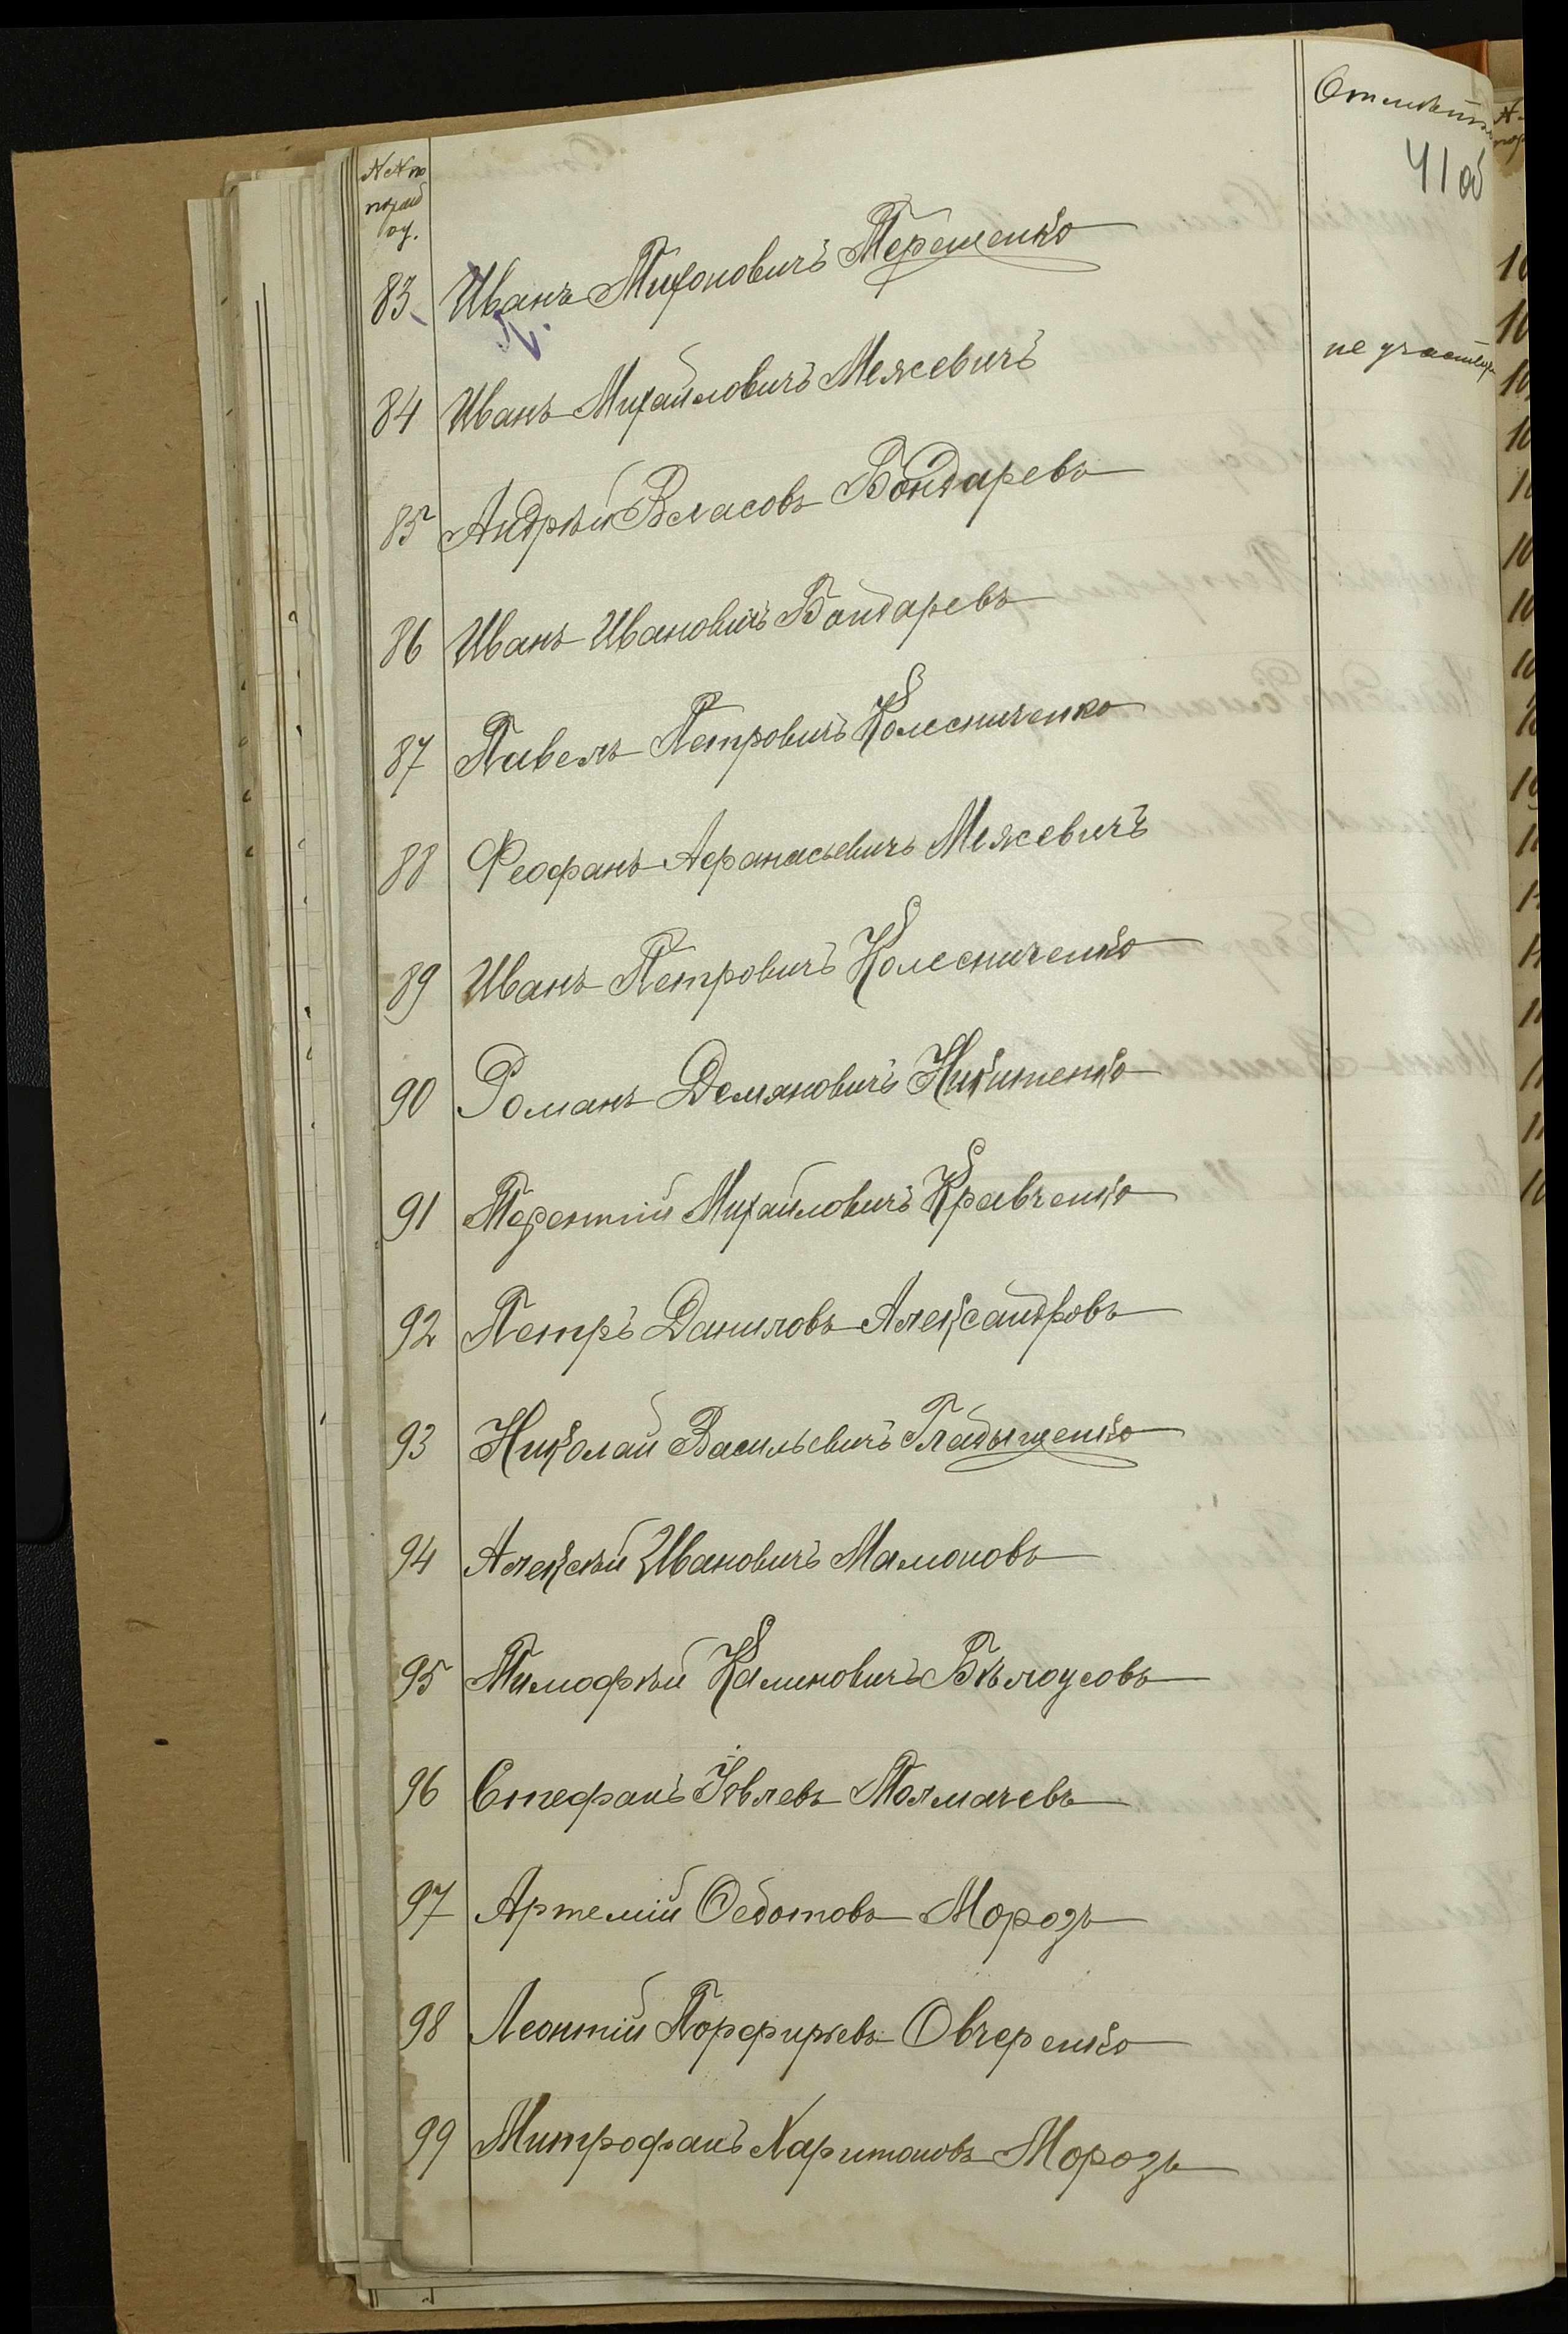 Отмѣтка
41 об
№№ по
поряд
оч.
83 Иванъ Тихоновичъ Терещенко
84 Иванъ Михайловичъ Межевичъ не участву
85 Андрѣй Власовъ Бондаревъ
86 Иванъ Ивановичъ Бондаревъ
87 Павелъ Петровичъ Колесниченко
88 Феофанъ Афанасьевичъ Межевичъ
89 Иванъ Петровичъ Колесниченко
90 Романъ Демяновичъ Никитенко
91 Терентій Михайловичъ Кравченко
92 Петръ Даниловъ Александровъ
93 Николай Васильевичъ Гладыщенко
94 Алексѣй Ивановичъ Мамоновъ
95 Тимофѣй Калиновичъ Бѣлоусовъ
96 Стефанъ Іовлевъ Толмачевъ
97 Артемій Ѳедотовъ Морозъ
98 Леонтій Порфирьевъ Овчеренко
99 Митрофанъ Харитоновъ Морозъ